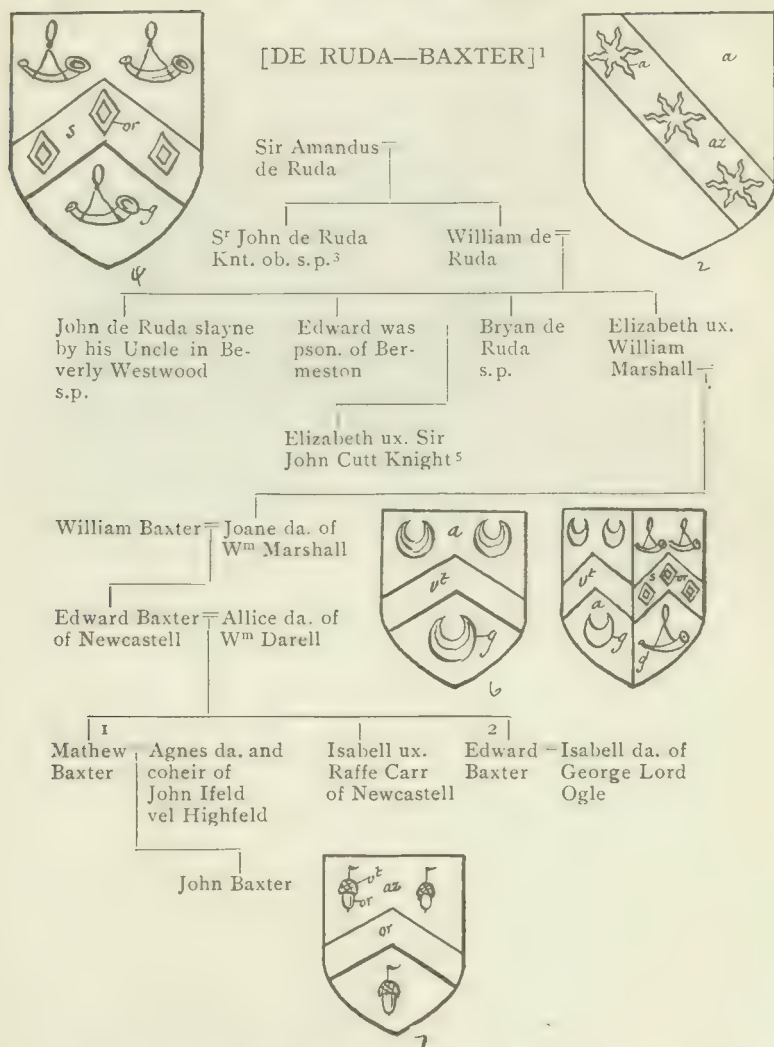 [DE RUDA—BAXTER]¹
s
or
g
4
a
a
az
2
Sir Amandus
de Ruda
Sʳ John de Ruda
Knt. ob. s.p.³
William de
Ruda
John de Ruda slayne
by his Uncle in Be-
verly Westwood
s.p.
Edward was
pson. of Ber-
meston
Bryan de
Ruda
s.p.
Elizabeth ux.
William
Marshall
Elizabeth ux. Sir
John Cutt Knight⁵
William Baxter
Joane da. of
Wᵐ Marshall
a
vt
g
6
vt
a
g
s
or
g
Edward Baxter
of Newcastell
Allice da. of
Wᵐ Darell
1
Mathew
Baxter
Agnes da. and
coheir of
John Ifeld
vel Highfeld
Isabell ux.
Raffe Carr
of Newcastell
2
Edward
Baxter
Isabell da. of
George Lord
Ogle
John Baxter
vt
or
az
or
7